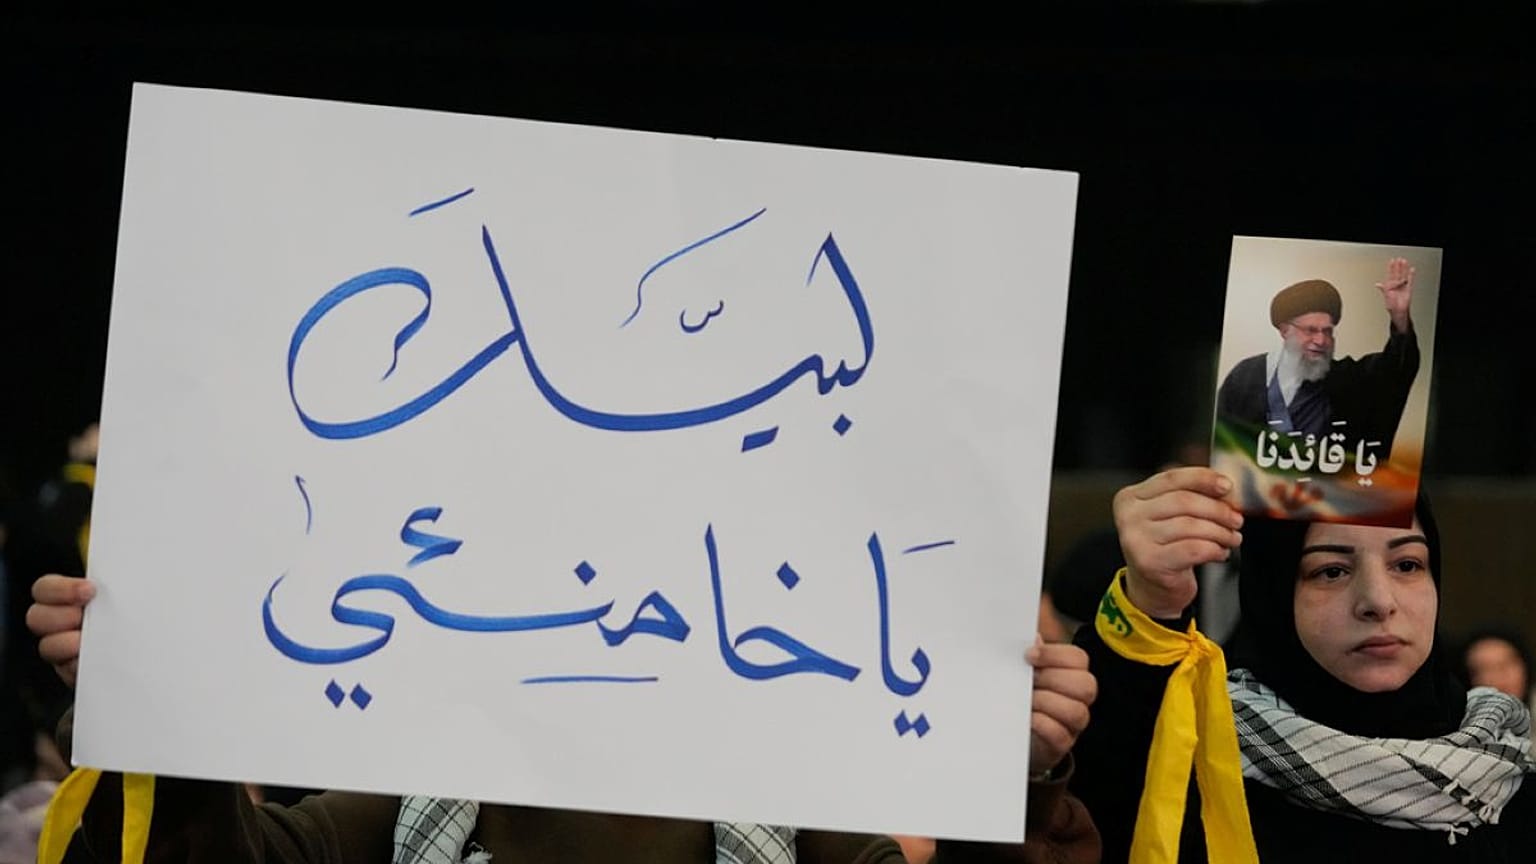 لبيّكَ
يَا خامنِئي
يَا قَائِدَنَا